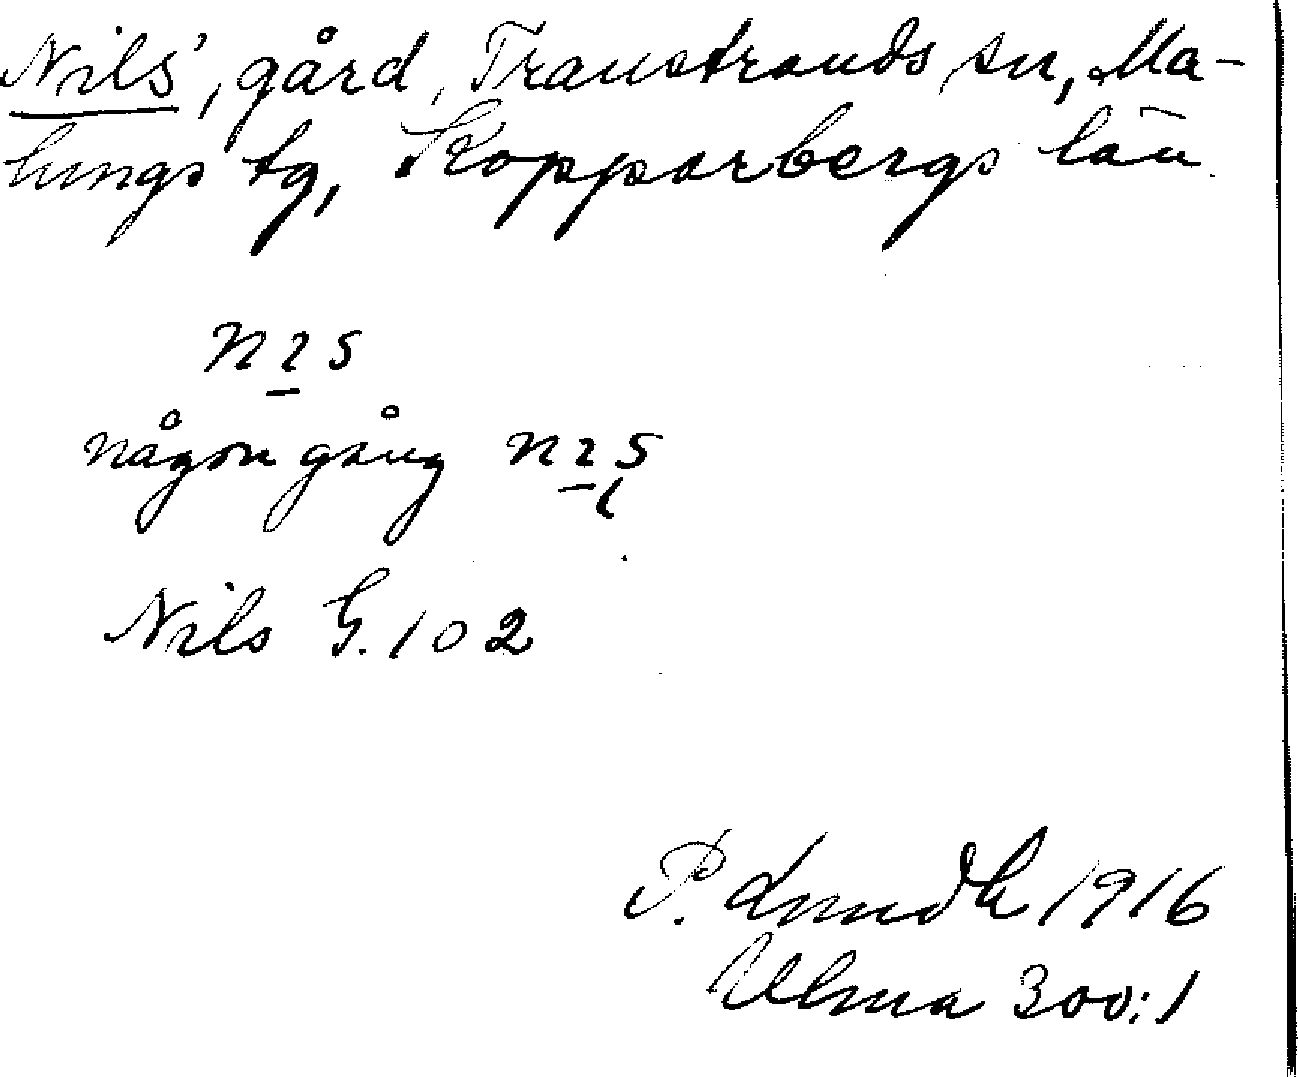 Nils', gård, Transtrands sn, Ma-
lungs tg, Kopparbergs län.
någon gång
Nils G. 102
P. Lundh 1916
Ulma 300:1